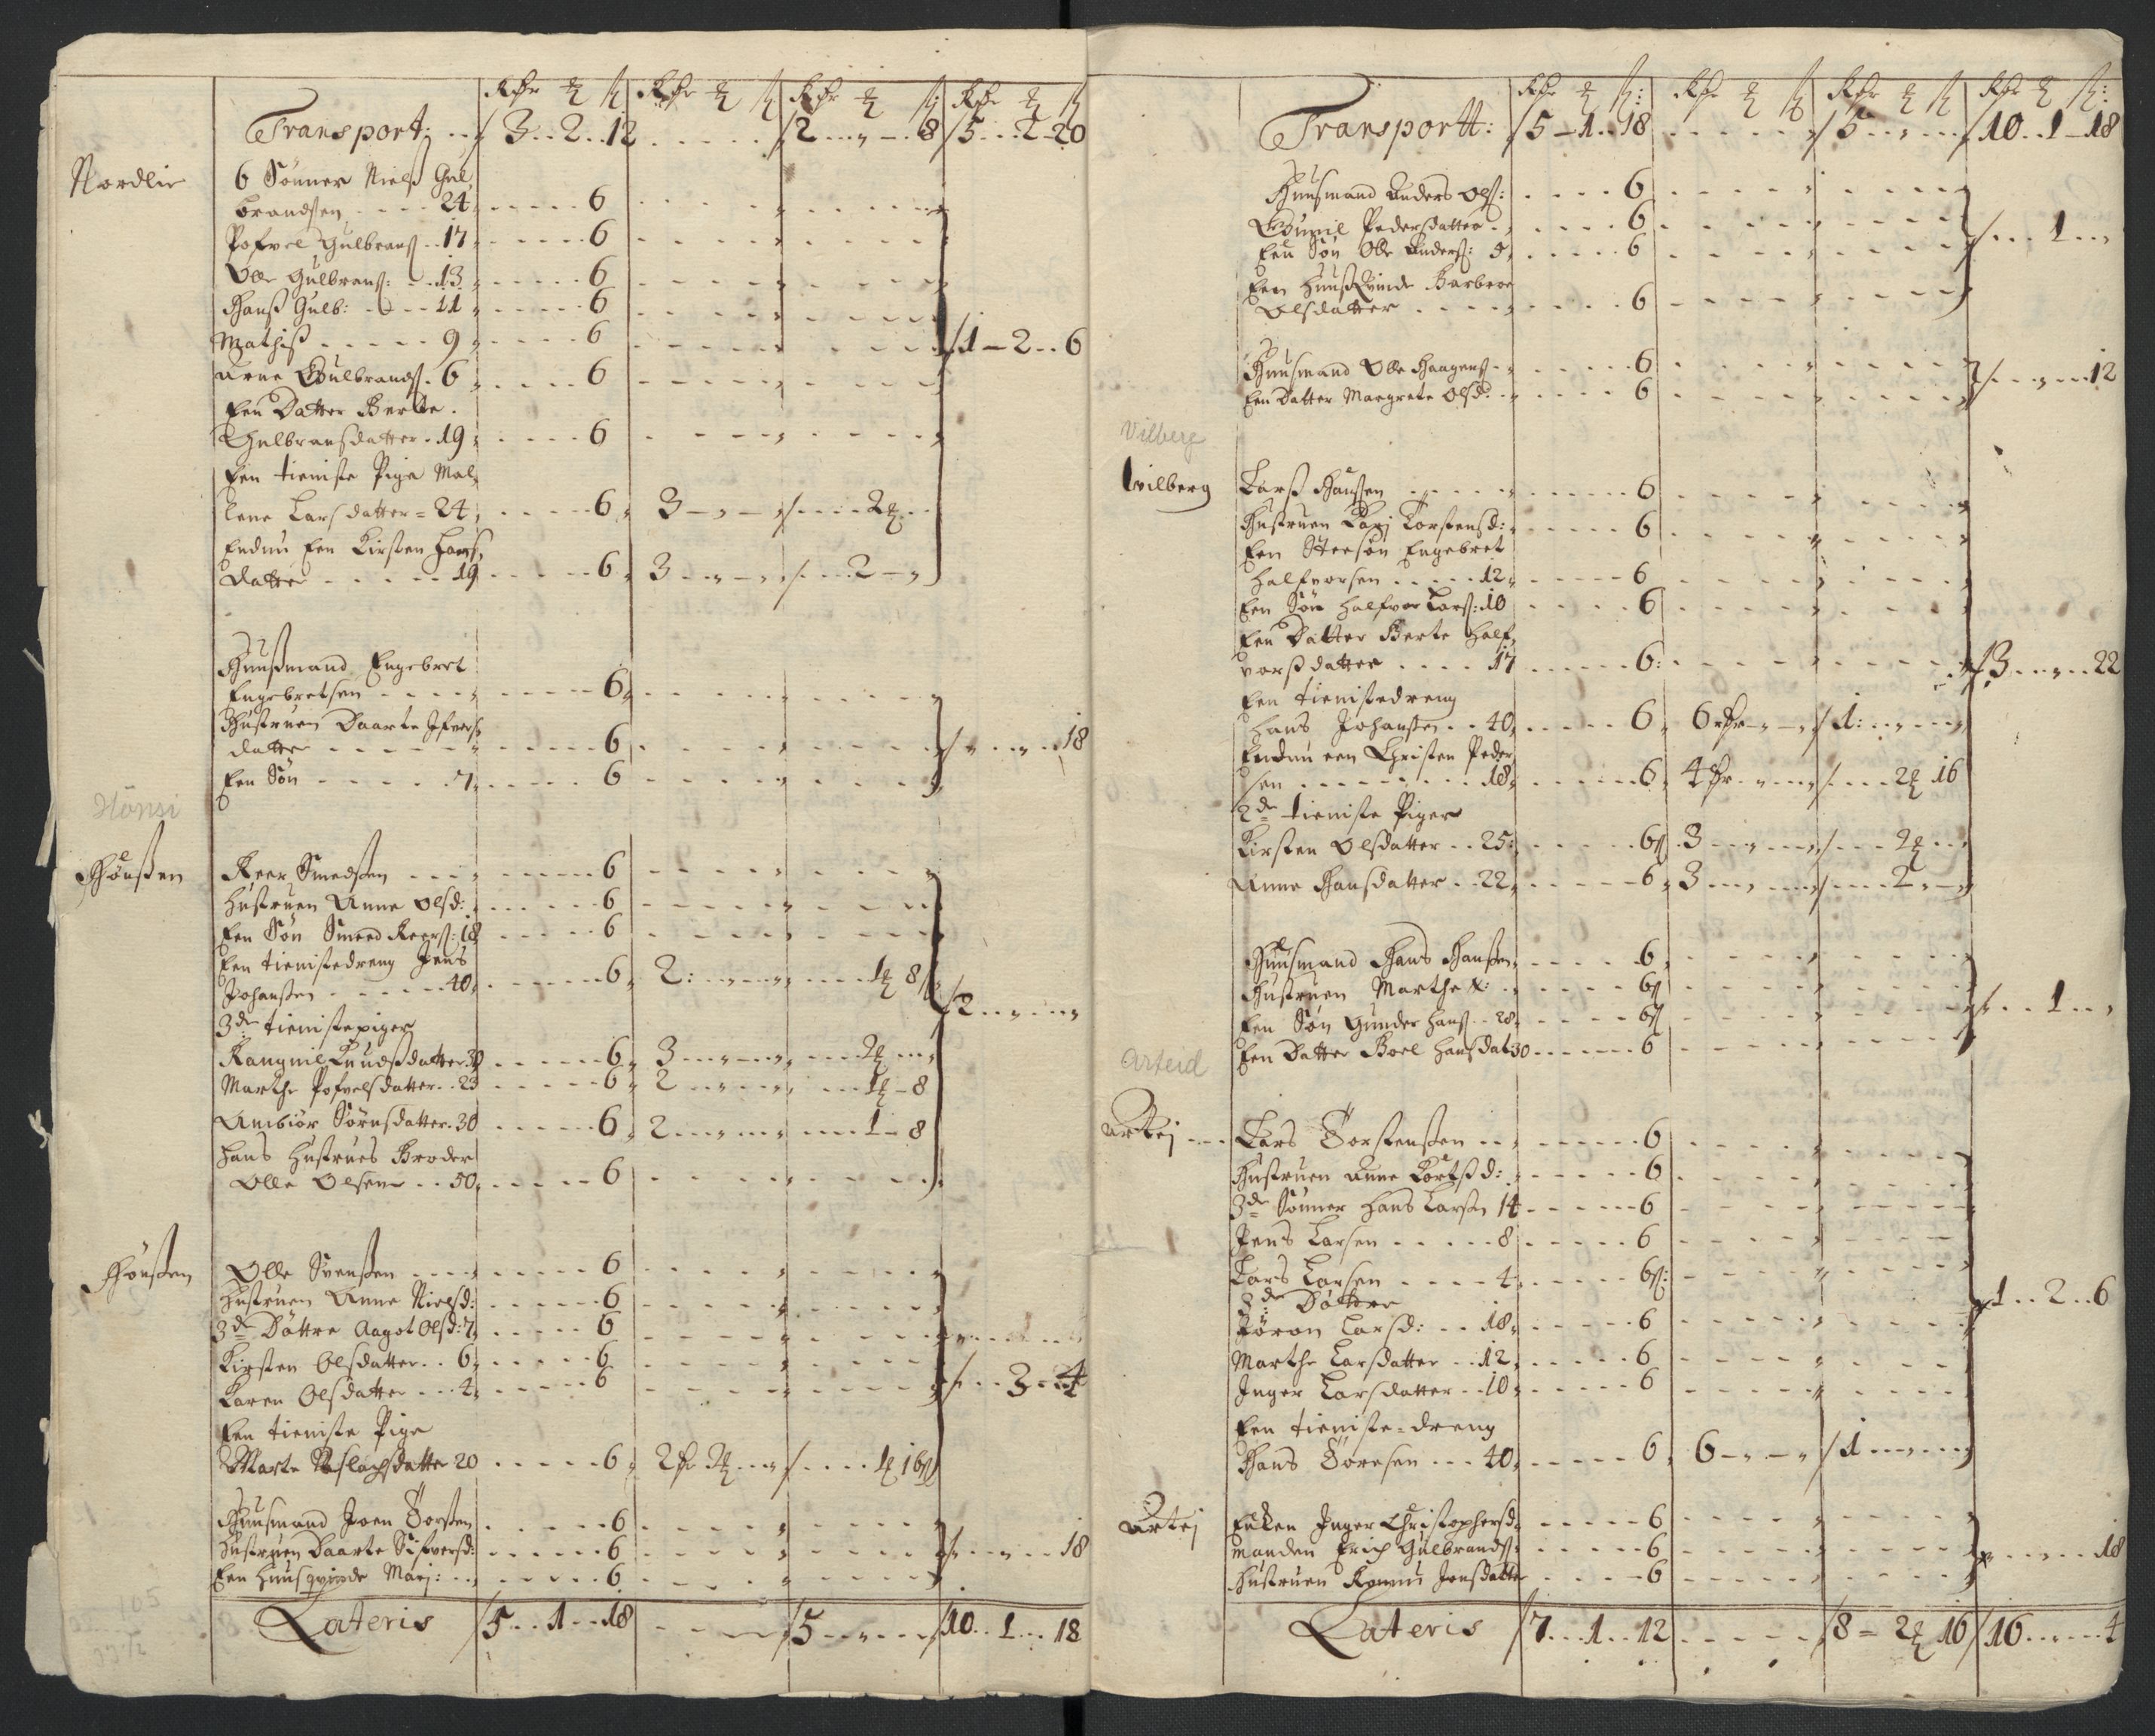 Rdr ɱ ß Rdr ɱ ß Rdr ɱ ß Rdr ɱ ß
Transport: 3 . . 2 . . 12 2 . . „ . . 8 5 . . 2 - 20
Nordlie 6 Sønner Nielß Gul
brandsen . . . 24 6
Pofvel Gulbranß . . 17 6
Olle Gulbranß: . . 13 6
Hanß Gulb: . . . 11 6
Mathiß . . . . . 9 6 1 - 2 . . 6
Arne Gulbrandß . 6 6
Een Datter Berte .
Gulbransdatter . 19 6
Een tieniste Pige Mal
lene Larsdatter = 24 6 3 - „ - „ 2 ɱ
Endnu Een Kirsten Hans
datter . . . . . 19 6 3 . . „ - „ 2 - „
Huußmand Engebret
Engebretsen . . . . 6
Hustruen Daarte Ifvers
datter . . . . . 6 18
Een Søn . . . . . 7 6
Hönsi
Hønßen Peer Smedßen . . . 6
Hustruen Anne Olsd: 6
Een Søn Smed Peerß: 18 6
Een tienistedreng Jens
Johanßen . . . . . 40 6 2: . . „ . . „ 1 ɱ 8 ß
2 . . „ . . „
3de tienistepiger
Rangnil Knudsdatter 30 6 3 . . „ . . „ 2 ɱ
Marthe Pofvelsdatter . . 23 6 2 . . „ . . „ 1 ɱ - 8
Ambiør Sørnsdatter . 30 6 2 . . „ . . „ 1 - 8
Hans Hustrues Broder
Olle Olsen . . 50 6
Hønßen Olle Svenßen . . . . 6
Hustruen Anne Nielsd: 6
3de Døttre Aagot Olsd: 7 6
Kirsten Olsdatter . . 6 6
Karen Olsdatter . . . 4 6 3 - 4
Een tieniste Pige
Marte Aslachsdatter 20 6 2 1 ɱ 16 ß
Huusmand Joen Torsten 6
Hustruen Daarte Sifversd: 6 18
Een Huusqvinde Mari: . . 6
Lateris 5 . . 1 . . 18 5 . . „ . . „ 10 . . 1 . . 18
Rdr ɱ ß: Rdr ɱ ß Rdr ɱ ß Rdr ɱ ß:
Transportt: 5 - 1 . . 18 5 . . „ . . 10 . . 1 - 18
Huusmand Anders Olß: 6
Gunnil Pedersdatter . 6 1 . . „
Een Søn Olle Anderß: 5 6
Een Huußqvinde Barbroe
Olsdatter . . . . . 6
Huusmand Olle Haagenß . . 6 12
Een Datter Margrete Olsd: . 6
Vilberg
Wilberg Larß Hanßen . . . . . 6
Hustruen Kari Torstensd: 6
Een Steesøn Engebret
Halfvorsen . . . . . 12 6
Een Søn Halfvor Larß: 10 6
Een Datter Berte Half
vorßdatter . . . . 17 6: 3 . . „ . . 22
Een tienistedreng
Hans Johanßen . . 40 6 6 rdr - „ - „ 1: . . „ . . „
Endnu een Christen Peder
sen . . . . . . . 18 6 4 dr . . „ . . „ 2 ɱ 16
2de tieniste Piger
Kirsten Olsdatter . . 25: 6 ß 3 . . „ . . „ 2 ɱ
Anne Hansdatter . . 22 6 3 . . „ . . „ 2 . - „
Huusmand Hans Hanßen 6
Hustruen Marthe X: . 6 ß 1 . . „
Een Søn Gunder Hanß . . 28 6 ß
Een Datter Boel Hansdat 30 6
Arteid
Artej . . . Lars Torstenßen . . 6
Hustruen Anne Kortsd: 6
3de Sønner Hans Larsen 14 6
Jens Larsen . . . . . 8 6
Lars Larsen . . . . 4 6 ß:
3de Døttre 1 . . 2 . . 6
Jøron Larsd: . . 18 6
Marthe Larsdatter . . 12 6
Inger Larsdatter . . 10 6
Een tieniste-dreng
Hans Toresen . . . 40 6 6 - „ - „ 1 . . „ . . „
Artej Enken Inger Christophersd 6
Manden Erich Gulbrandß: 6 18
Hustruen Jonsdatter 6
Lateris 7 . . 1 . . 12 8 = 2 ɱ 16 16 . . „ . . 4